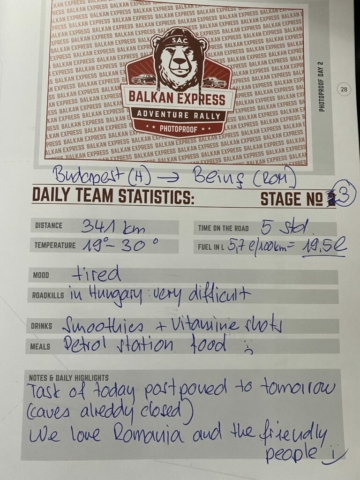 S.A.C.
BALKAN EXPRESS
ADVENTURE RALLY
PHOTOPROOF
PHOTOPROOF DAY 2
28
Budapest (H) → Beiuş (ROM)
DAILY TEAM STATISTICS: STAGE NO 3
DISTANCE 341 km TIME ON THE ROAD 5 std.
TEMPERATURE 19°-30° FUEL IN L 5,7 l/100km = 19,5l
MOOD tired
ROADKILLS in Hungary very difficult
DRINKS Smoothies + Vitamine shots
MEALS Petrol station food ;
NOTES & DAILY HIGHLIGHTS
Task of today postponed to tomorrow
(caves already closed)
We love Romania and the friendly
people